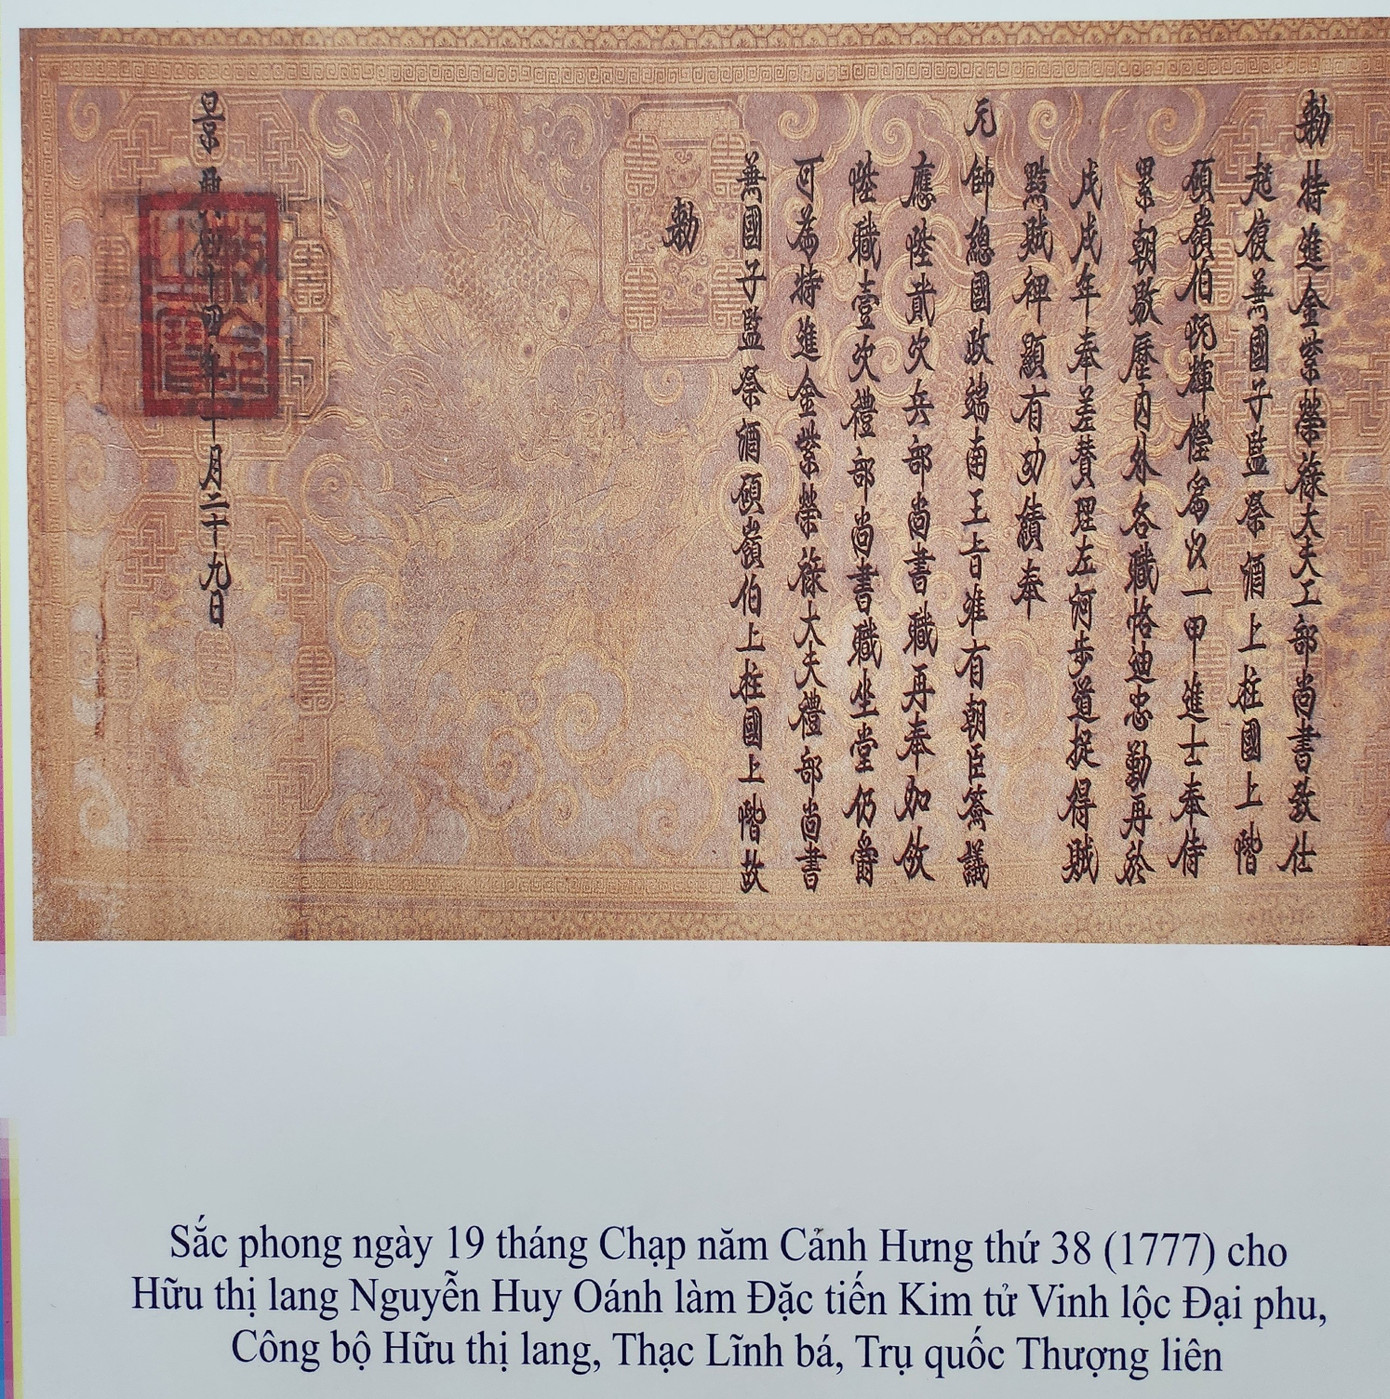 勅特進金紫榮祿大夫工部尚書致仕
起復兼國子監祭酒上柱國上階
碩嶺伯阮輝爲以一甲進士奉侍
累朝敭歷內外各職恪迪忠勤再於
戊戌年奉差贊理左河步道捉得賊
黠賊裨顯有功績奉
元帥總國政端南王旨准有朝臣簽議
應陞貳次兵部尚書職再奉加敘
陞職壹次禮部尚書職坐堂仍爵
可為特進金紫榮祿大夫禮部尚書
兼國子監祭酒碩嶺伯上柱國上階故
勅
景興四十四年十月二十九日
Sắc phong ngày 19 tháng Chạp năm Cảnh Hưng thứ 38 (1777) cho
Hữu thị lang Nguyễn Huy Oánh làm Đặc tiến Kim tử Vinh lộc Đại phu,
Công bộ Hữu thị lang, Thạc Lĩnh bá, Trụ quốc Thượng liên